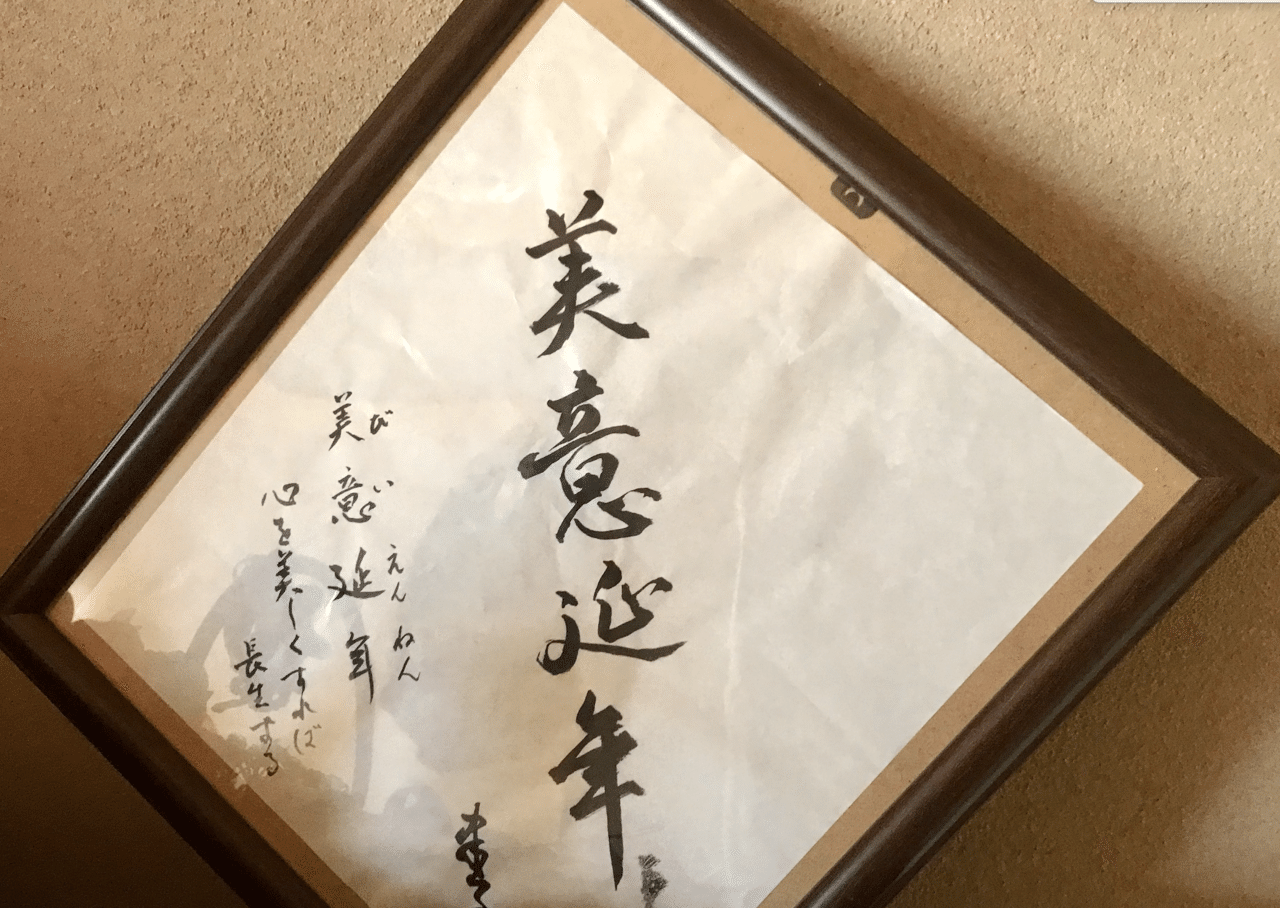 美意延年
びいえんねん
美意延年
心を美しくすれば
長生する